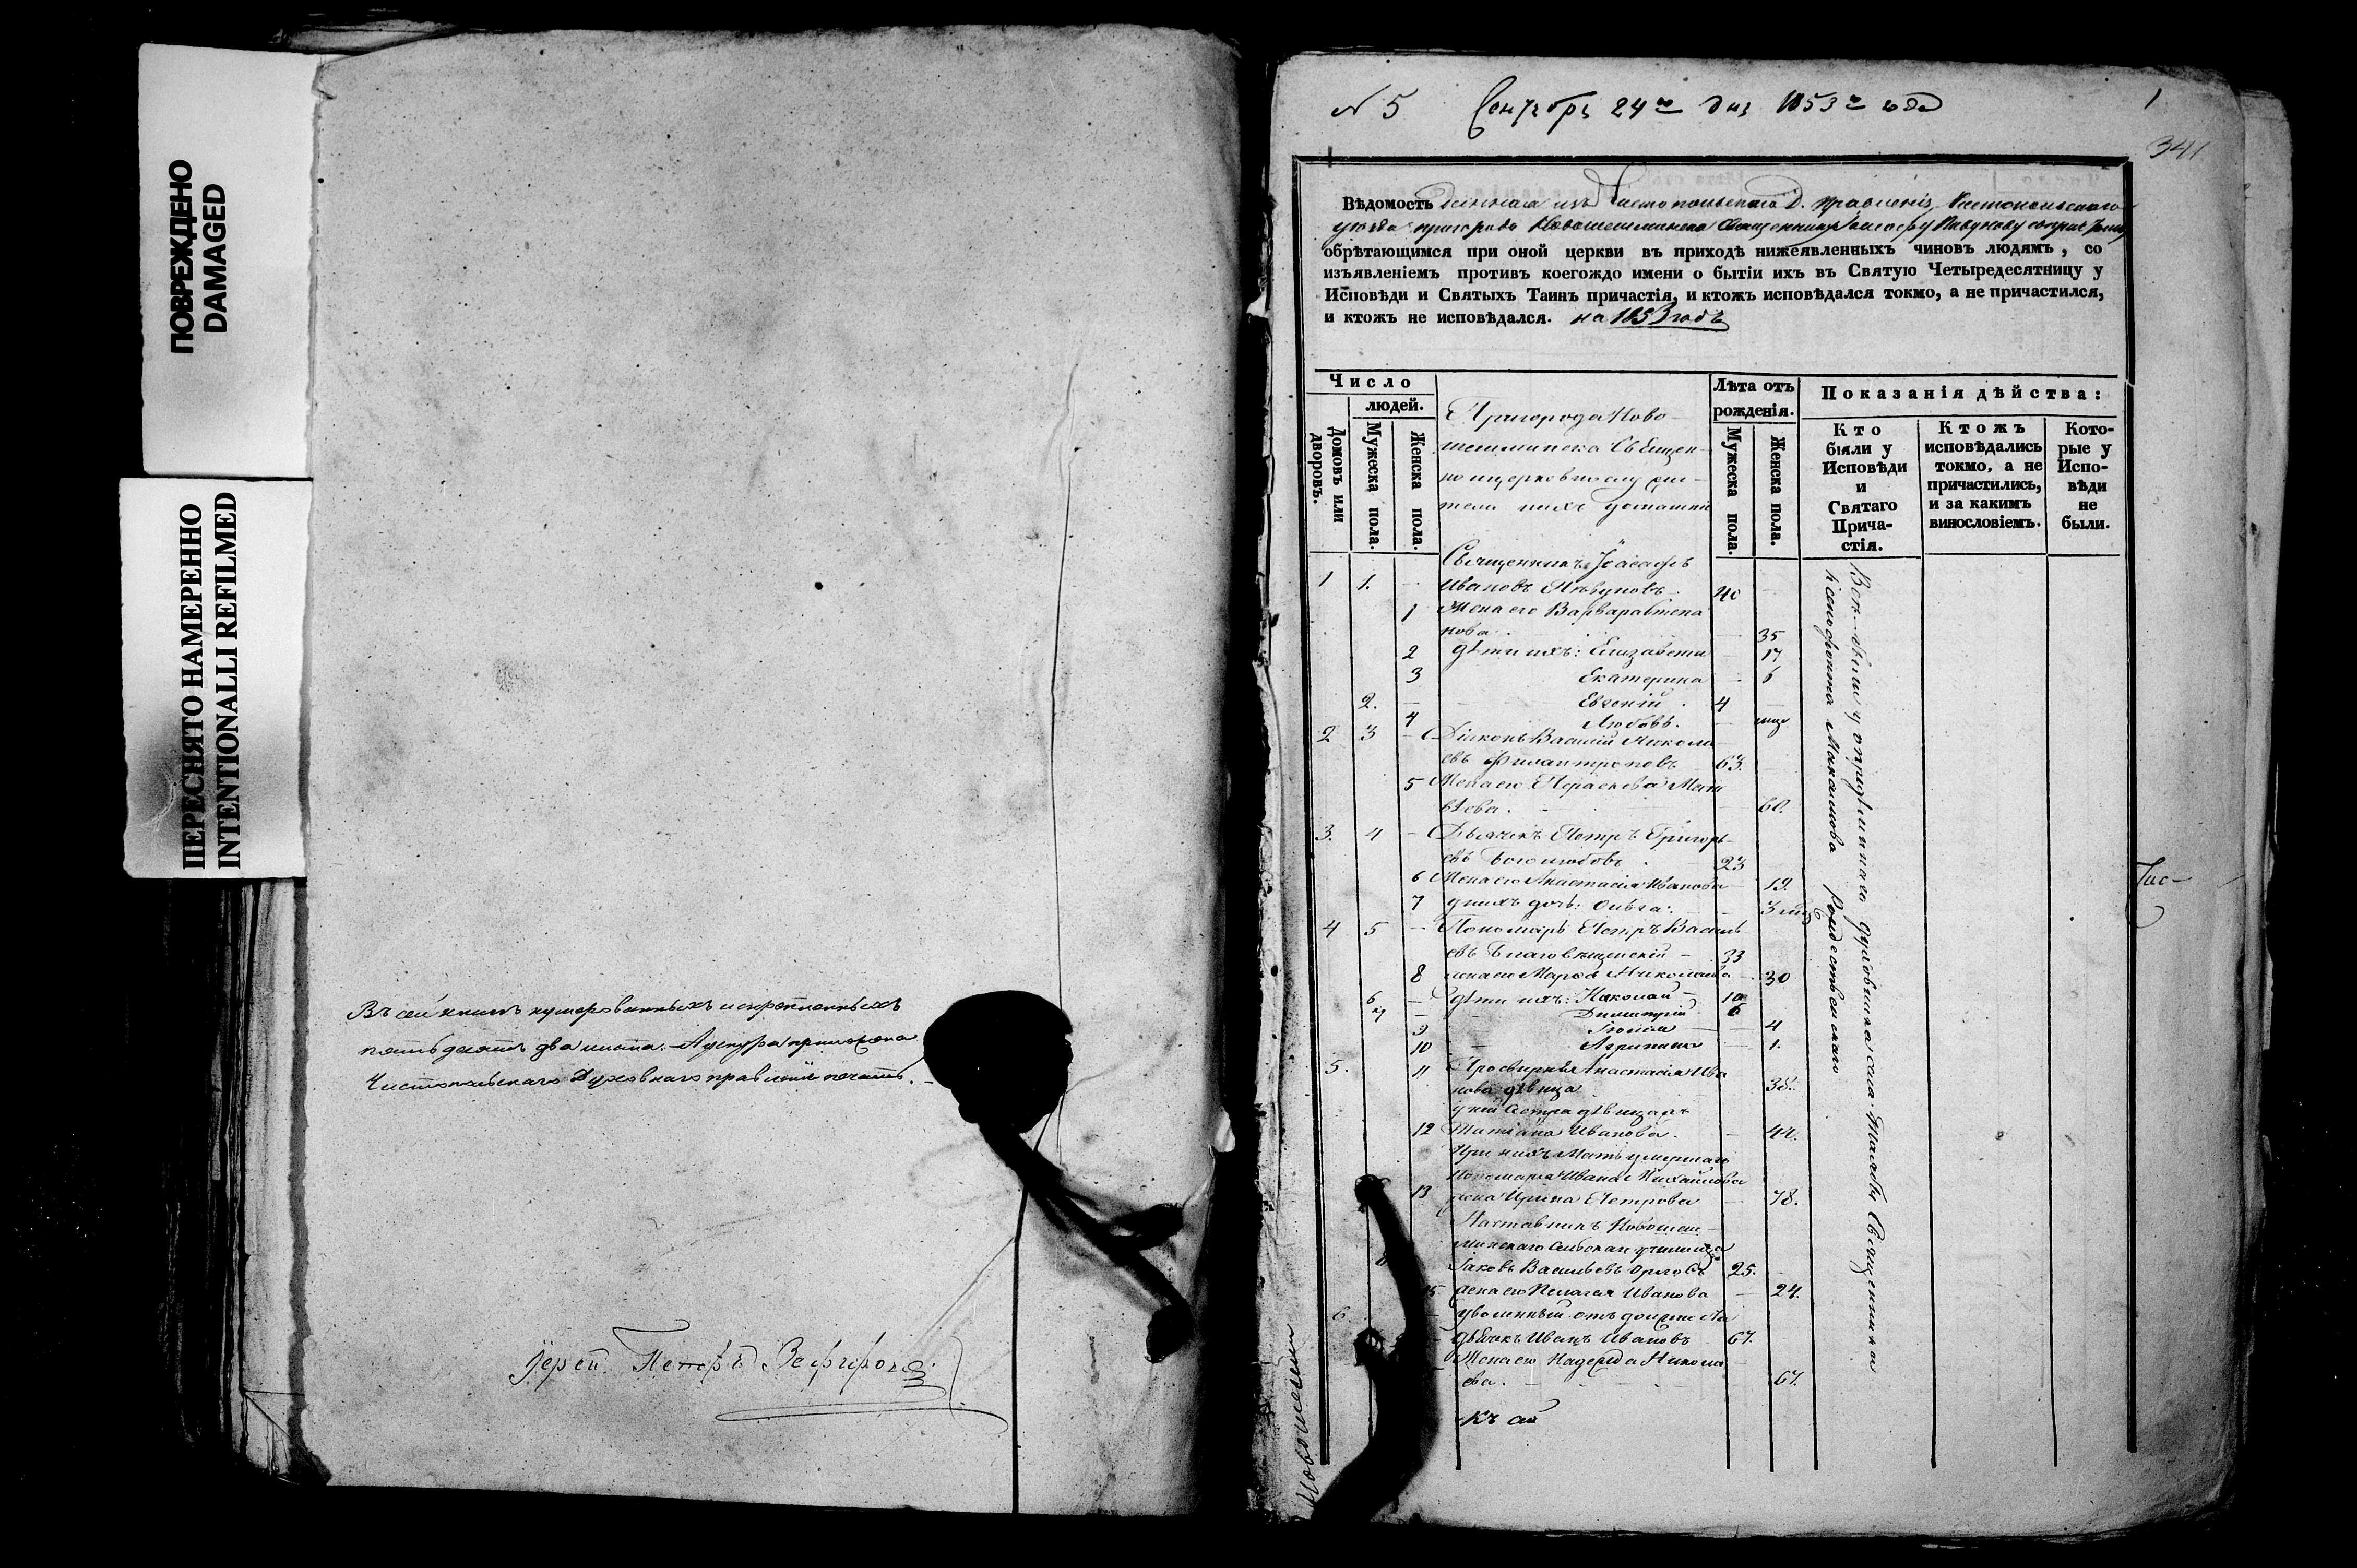 ПОВРЕЖДЕНО
DAMAGED
ПЕРЕСНЯТО НАМЕРЕННО
INTENTIONALLI REFILMED
Въ сей книгѣ нумерованныхъ и скрѣпленныхъ
пятьдесятъ два листа. А у снура приложена
Чистопольскаго Духовнаго правленія печать.
Іерей Петръ Зефировъ
N 5 Сентября 24го дня 1853го года
1
341
Вѣдомость данная изъ Чистопольскаго Д. Правленія Чистопольскаго
уѣзда пригорода Новошешминска Священнику Іоасафу
обрѣтающимся при оной церкви въ приходѣ нижеявленныхъ чиновъ людямъ, со
изъявленіемъ противъ коегождо имени о бытіи ихъ въ Святую Четыредесятницу у
Исповѣди и Святыхъ Таинъ причастія, и ктожъ исповѣдался токмо, а не причастился,
и ктожъ не исповѣдался. на 1853 годъ
Число
людей.
Домовъ или дворовъ.
Мужеска пола.
Женска пола.
Пригорода Ново
шешминска Священ-
но церковно слу-
жители и ихъ домашніе
Лѣта отъ
рожденія.
Мужеска пола.
Женска пола.
Показанія дѣйства:
Кто
были у
Исповѣди
и
Святаго
Прича-
стія.
Ктожъ
исповѣдались
токмо, а не
причастились,
и за какимъ
винословіемъ.
Кото-
рые у
Испо-
вѣди
не
были.
Священникъ Іоасафъ
1 1. Ивановъ 40
1 Жена его Варвара Степа
нова 35
2 Дѣти ихъ: Елизавета 17
3 Екатерина 6
2. Евгеній 4
4 Любовь.
2 3 Діяконъ Василій Никола
евъ Филантроповъ 63.
5 Жена его Параскева Мат
вѣева. 60.
3. 4 Дьячекъ Петръ Григорь
евъ Боголюбовъ 23
6 Жена его Анастасія Иванова 19.
7 у нихъ дочь: Ольга. 3
4 5 Пономарь Петръ Василь
евъ Благовѣщенскій 33
8 жена его Марѳа Николаева 30
6 дѣти ихъ: Николай 10
7 Димитрій 6
9 4
10 Агрипина 1.
5. 11 Просвирня Анастасія Ива
нова дѣвица 38.
у ней сестра дѣвица
12 Татіана Иванова. 42.
При нихъ Мать умершаго
пономаря Ивана Михайлова
13 жена Ирина Петрова 78.
Наставникъ Новошеш-
минскаго сельскаго училища
8 Іаковъ Васильевъ Орловъ 25.
15 жена его Пелагея Иванова 24.
6 уволенный отъ должности
дьячекъ Иванъ Ивановъ 67.
Жена его Надежда Никола
ева. 67.
Къ сей
Всѣ были у опредѣленнаго духовника села Священника
Ксенофонта Рождественскаго
Новошешм